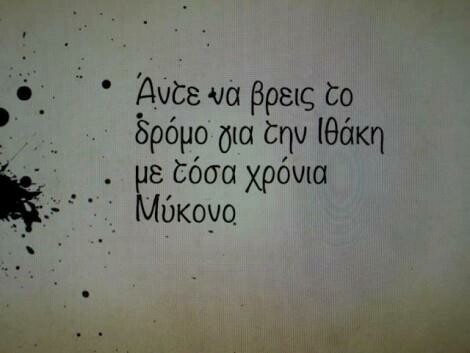 Άντε να βρεις το
δρόμο για την Ιθάκη
με τόσα χρόνια
Μύκονο